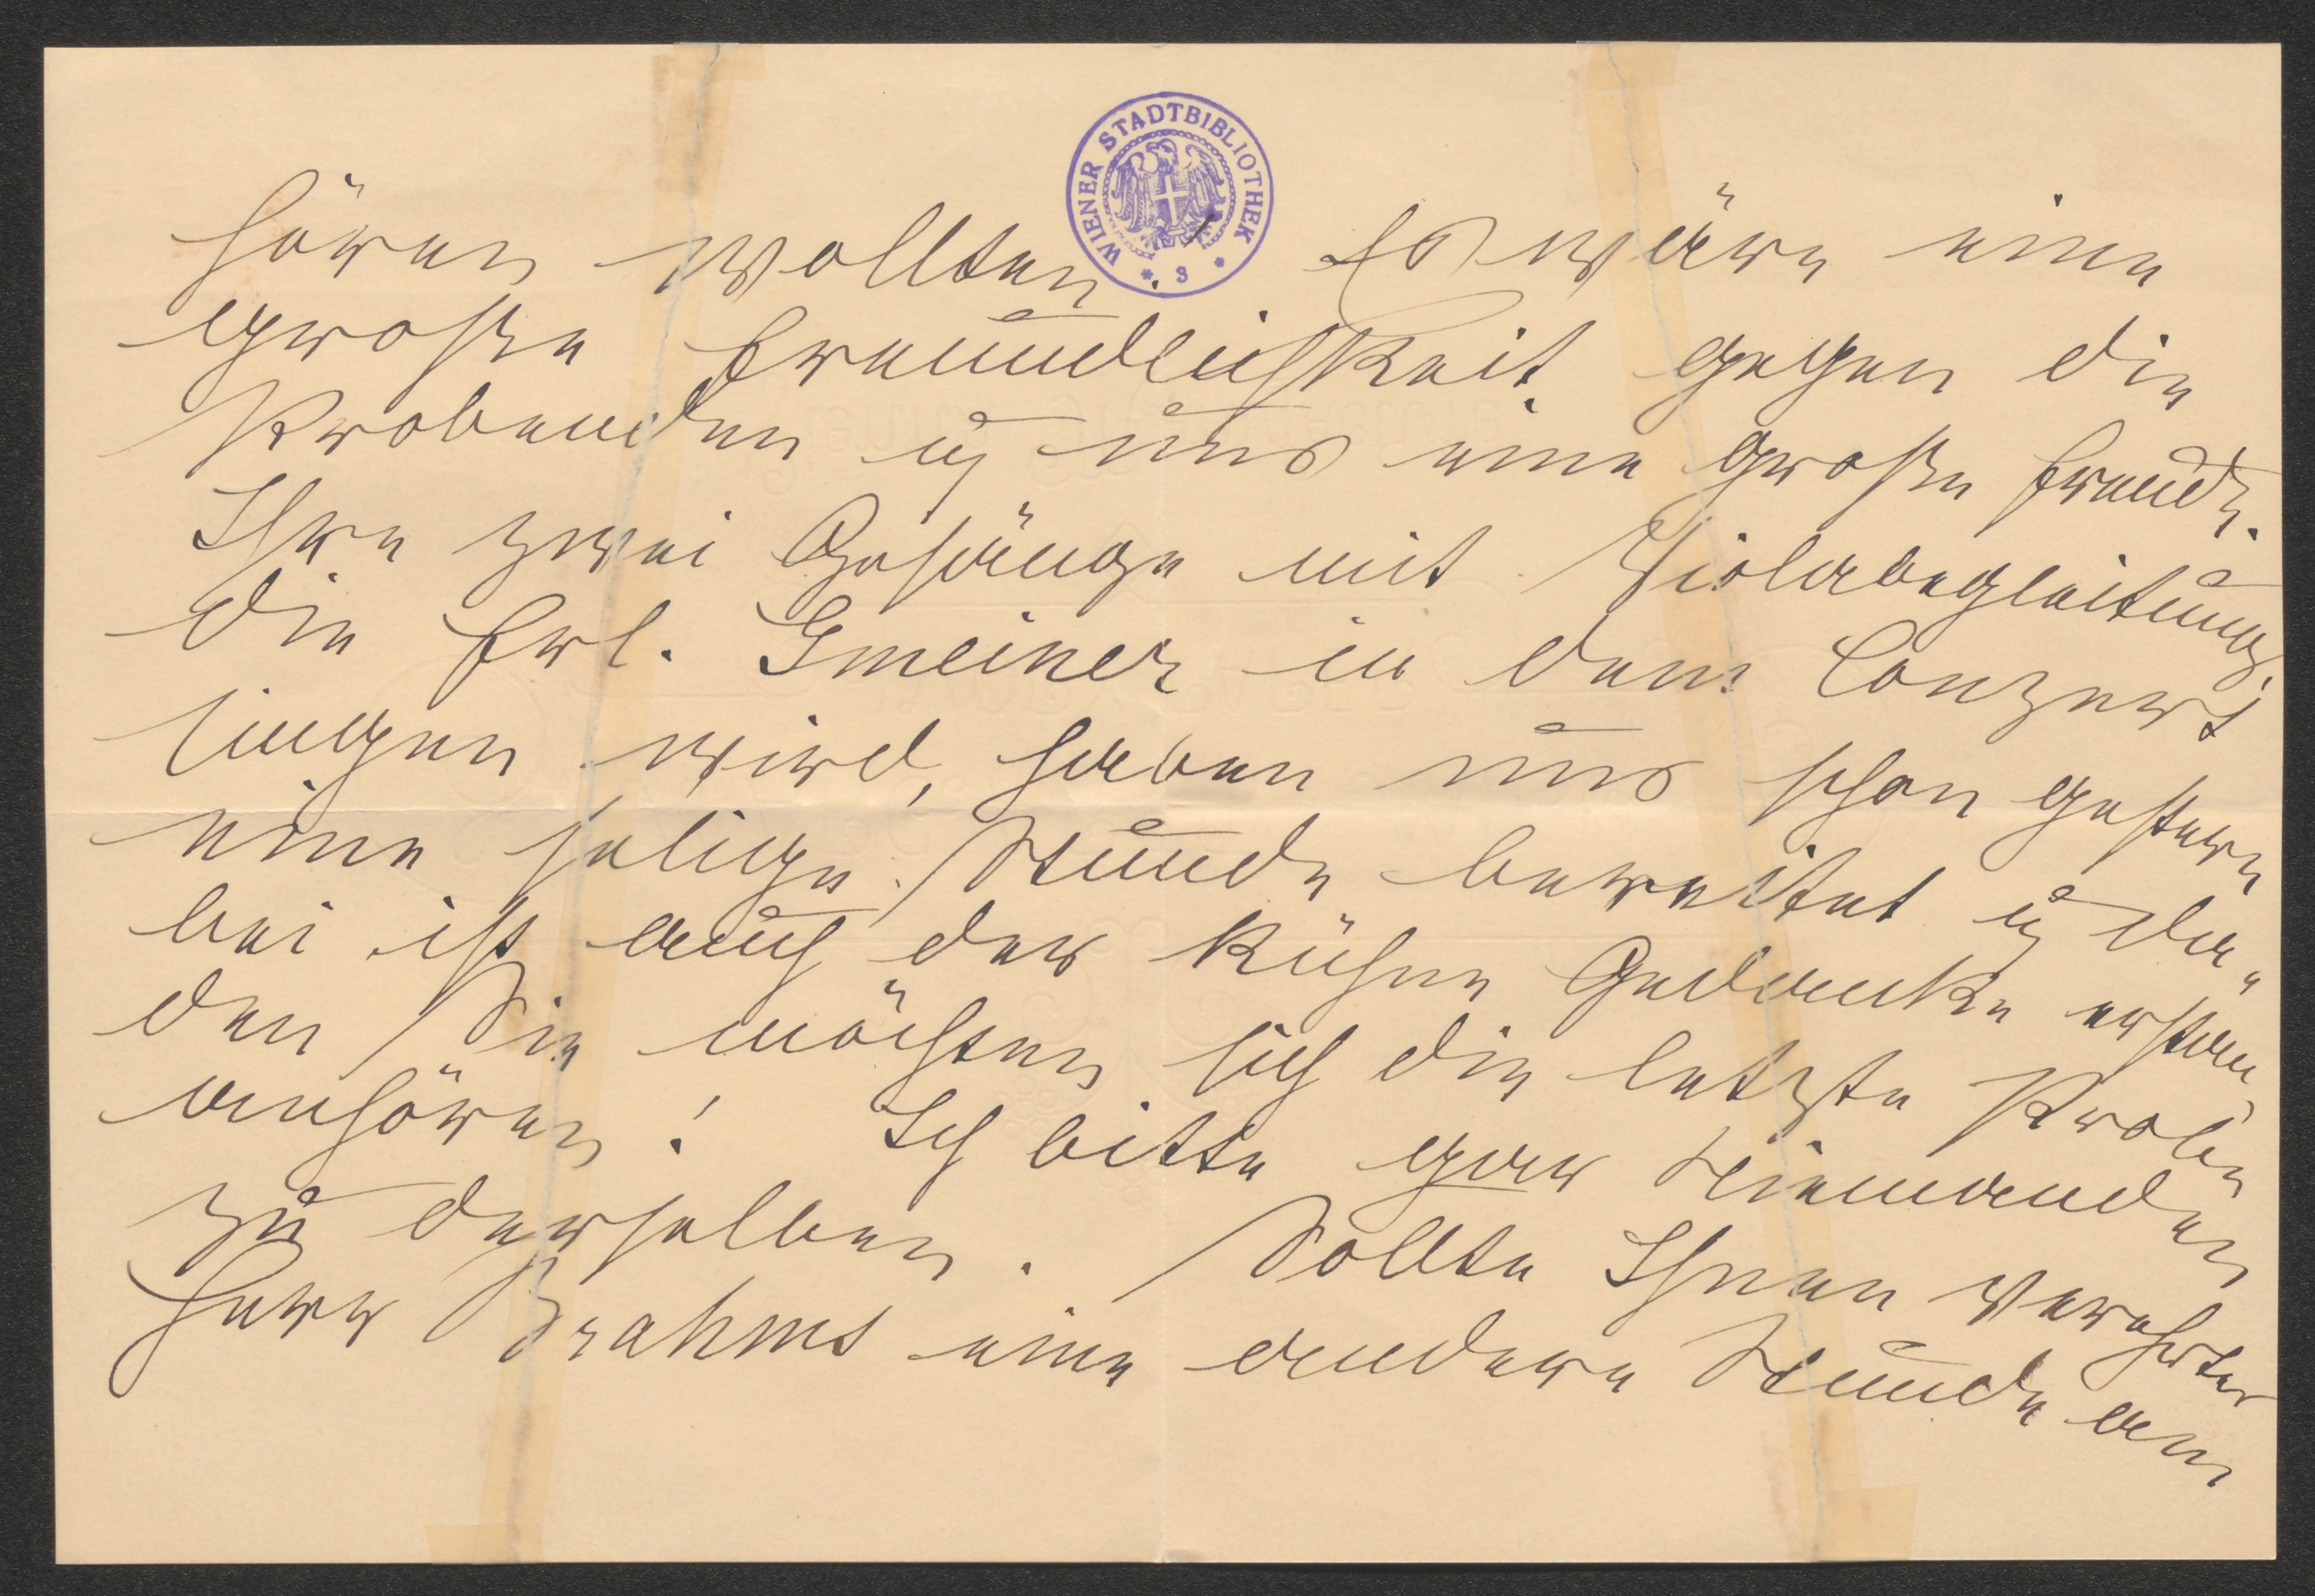 WIENER STADTBIBLIOTHEK * 3 *
hören wollten. Es wäre eine
große Freundlichkeit gegen die
Probenden u uns eine große Freude.
Ihre zwei Gesänge mit Violabegleitung,
die Frl. Gmeiner in dem Conzert
singen wird, haben uns schon gestern
eine selige Stunde bereitet u da-
bei ist auch der kühne Gedanke erstan-
den Sie möchten sich die letzte Probe
anhören! Ich bitte gar Niemanden
zu derselben. Sollte Ihnen verehrter
Herr Brahms eine andere Stunde am